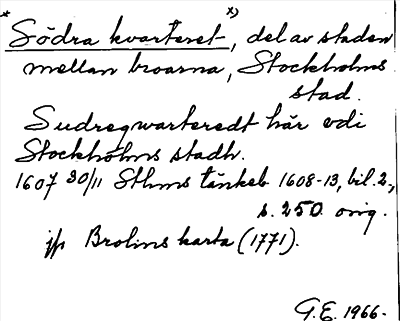 * Södra kvarteret x), del av staden
mellan broarna, Stockholms
stad.
Sudreqwarteredt här vdi
Stockholms stadh.
1607 30/11 Sthms tänkeb 1608-13, bil. 2,
s. 250 orig.
jfr Brolins karta (1771).
G.E. 1966.